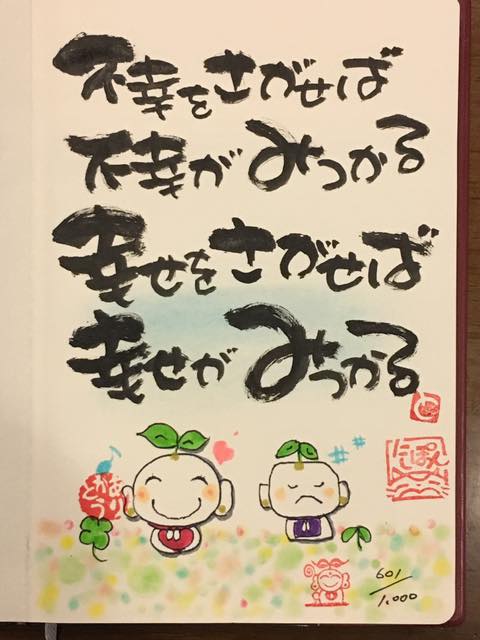 不幸をさがせば
不幸がみつかる
幸せをさがせば
幸せがみつかる
にしぽん
601/1,000